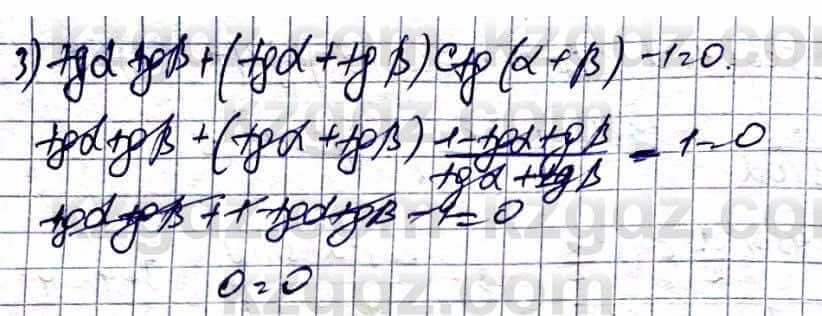 3) tgα tgβ + (tgα + tgβ) ctg(α + β) - 1 = 0.
tgα tgβ + (tgα + tgβ) (1 - tgα tgβ)/(tgα + tgβ) - 1 = 0
tgα tgβ + 1 - tgα tgβ - 1 = 0
0 = 0
kzgdz.com